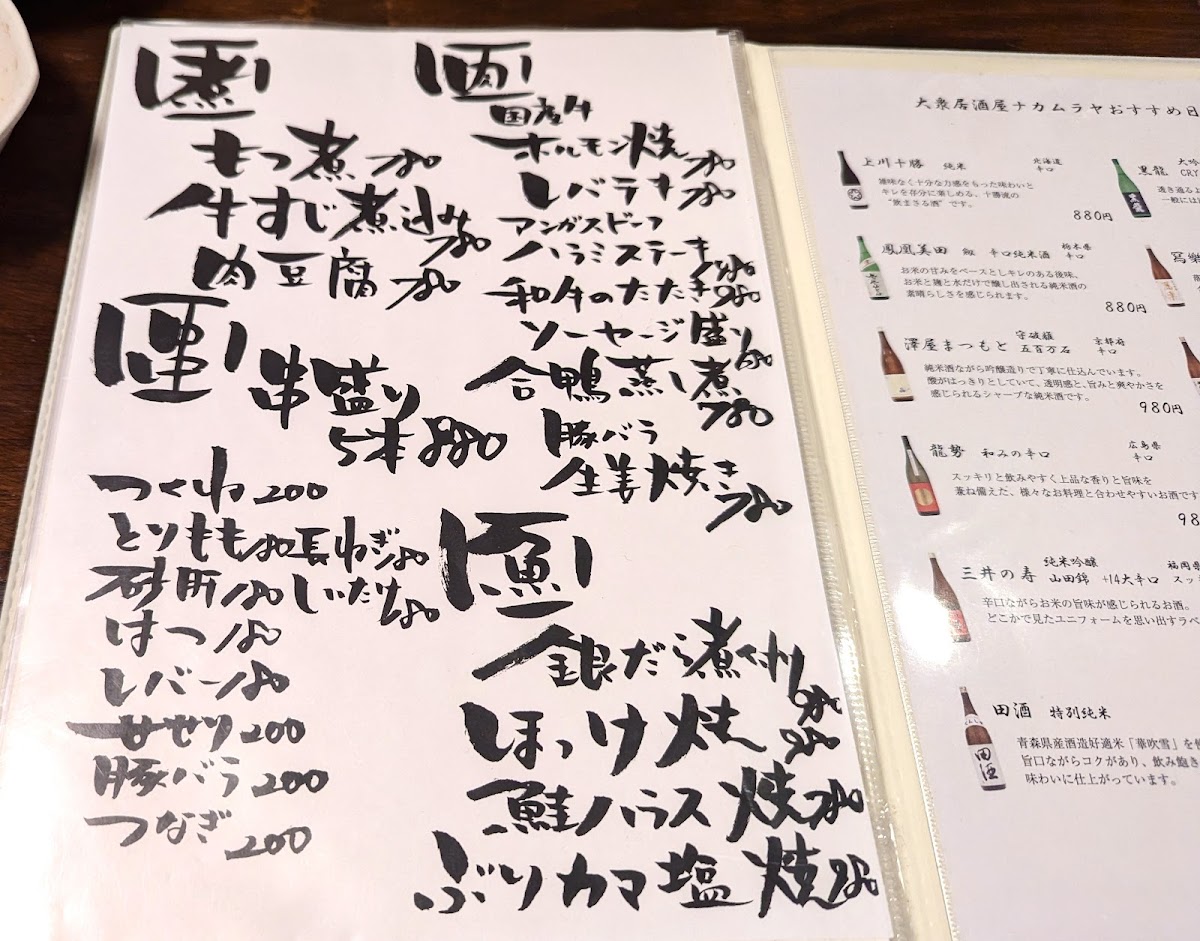 煮
もつ煮 780
牛すじ煮込み
780
肉豆腐 780
串
串盛り
5本 880
つくね 200
とりもも 180 長ねぎ 180
砂肝 180 しいたけ 180
はつ 180
レバー 180
せせり 200
豚バラ 200
つなぎ 200
肉
国産牛
ホルモン焼 780
レバニラ 780
アンガスビーフ
ハラミステーキ
和牛のたたき 980
ソーセージ盛り
合鴨蒸し煮
780
豚バラ
生姜焼き
780
魚
銀だら煮付け
ほっけ焼
鮭ハラス焼 780
ぶりカマ塩焼 980
大衆居酒屋ナカムラヤおすすめ日
上川十勝 純米 北海道
辛口
雑味なく十分な力感をもった味わいと
キレを存分に楽しめる、十勝流の
“飲まさる酒”です。
880円
鳳凰美田 剱 辛口純米酒 栃木県
辛口
お米の甘みをベースとしキレのある後味、
お米と麹と水だけで醸し出される純米酒の
素晴らしさを感じられます。
880円
澤屋まつもと 守破離
五百万石 京都府
辛口
純米酒ながら吟醸造りで丁寧に仕込んでいます。
酸がはっきりとしていて、透明感と、旨みと爽やかさを
感じられるシャープな純米酒です。
980円
龍勢 和みの辛口 広島県
辛口
スッキリと飲みやすく上品な香りと旨味を
兼ね備えた、様々なお料理と合わせやすいお酒です
98
三井の寿 純米吟醸
山田錦 +14大辛口 福岡県
スッ
辛口ながらお米の旨味が感じられるお酒。
どこかで見たユニフォームを思い出すラベ
田酒 特別純米
青森県産酒造好適米「華吹雪」を使
旨口ながらコクがあり、飲み飽き
味わいに仕上がっています。
田酒
大吟
黒龍 CRY
透き通る
一般には
寫樂